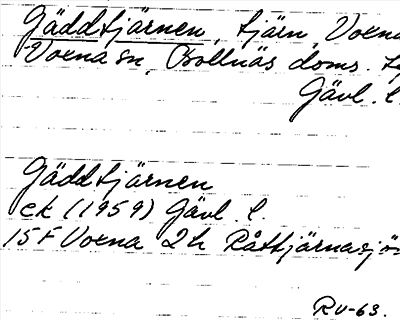 Gäddtjärnen, tjärn, Voxna
Voxna sn, Bollnäs doms.
Gävl. l.
Gäddtjärnen
ek (1959) Gävl. l.
15F Voxna 2h Råttjärnasjö
RV-63.